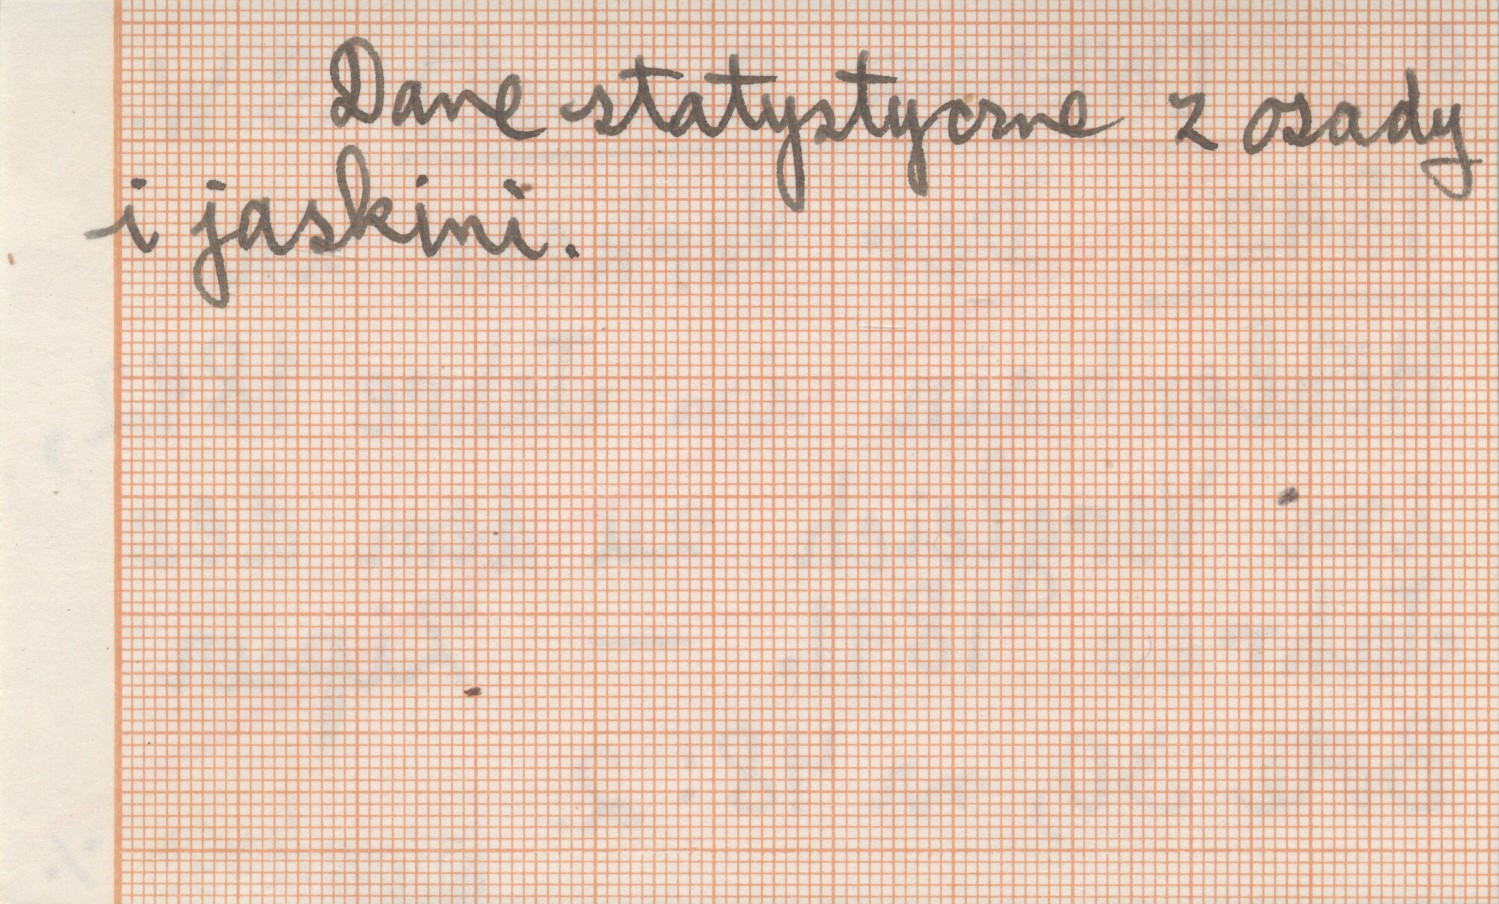 Dane statystyczne z osady
i jaskini.